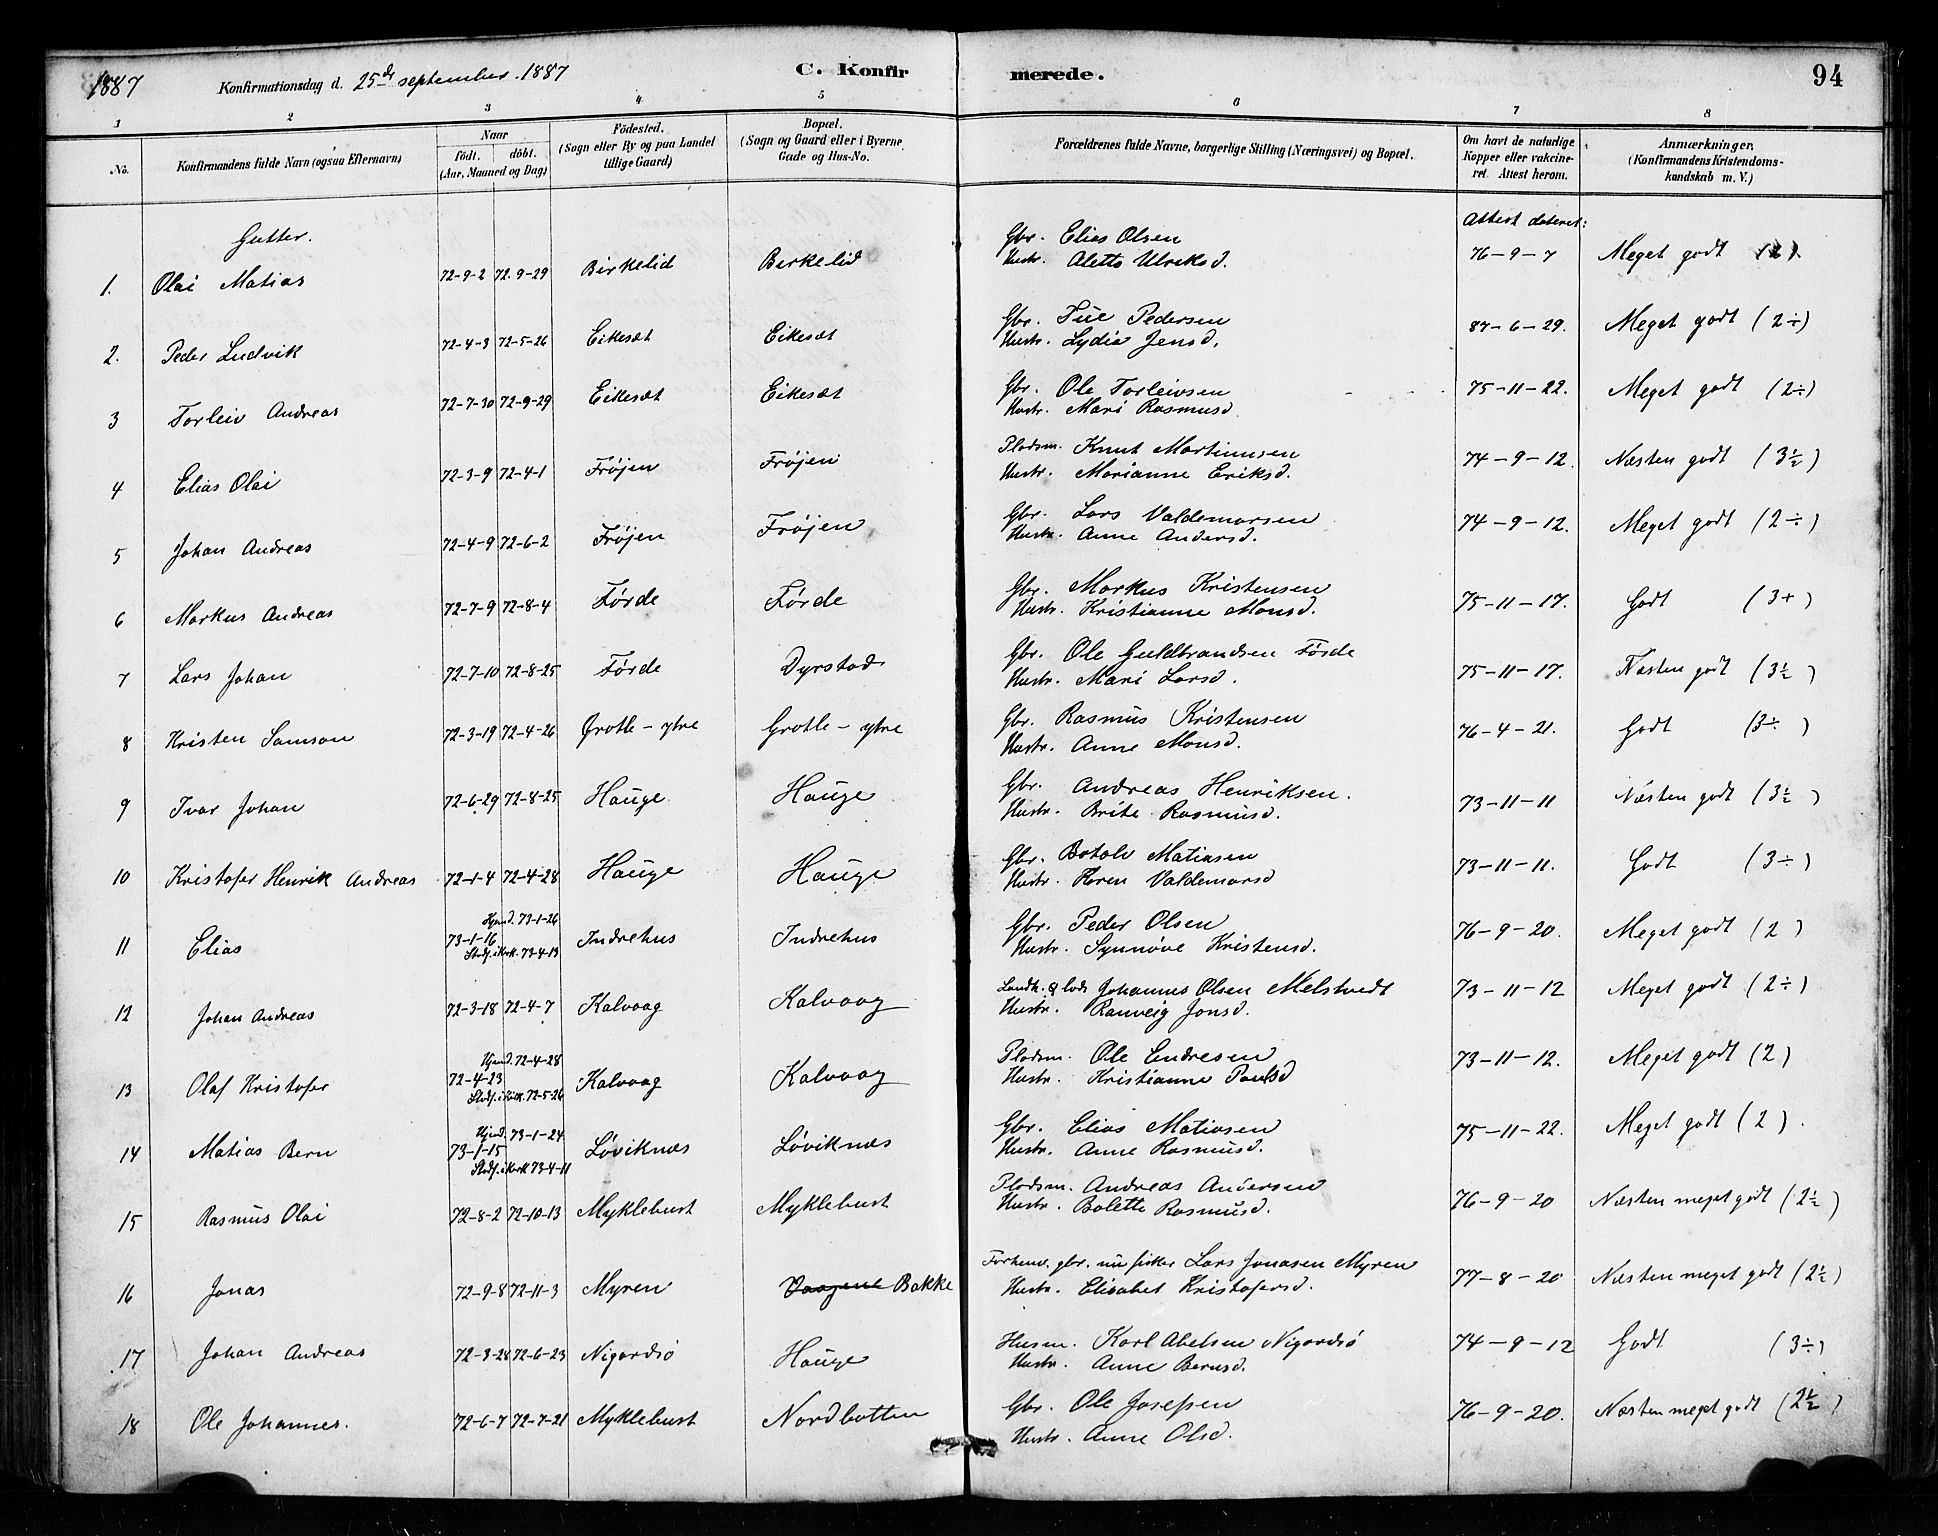 1887 Konfirmationsdag d. 25de september 1887 C. Konfirmerede. 94
1 2 3 4 5 6 7 8
No. Konfirmandens fulde Navn (ogsaa Efternavn) Naar født. døbt. (Aar, Maaned og Dag) Fødested. (Sogn eller By og paa Landet tillige Gaard) Bopæl. (Sogn og Gaard eller i Byerne Gade og Hus-No. Forældrenes fulde Navne, borgerlige Stilling (Næringsvei) og Bopæl. Om havt de naturlige Kopper eller vakcineret. Attest herom. Anmærkninger. (Konfirmandens Kristendomskundskab m. V.)
Gutter. Attest dateret:
1. Olai Matias 72-9-2 72-9-29 Birkelid Birkelid Gbr. Elias Olsen 76-9-7 Meget godt
Hustr. Alette Ulriksd.
2. Peder Ludvik 72-4-3 72-5-26 Eikesæt Eikesæt Gbr. Tue Pedersen 87-6-29. Meget godt (2÷)
Hustr. Lydia Jensd.
3 Torleiv Andreas 72-7-30 72-9-29 Eikesæt Eikesæt Gbr. Ole Torleivsen 75-11-22. Meget godt (2÷)
Hustr. Mari Rasmusd.
4 Elias Olai 72-3-9 72-4-1 Frøjen Frøjen Pladsm. Knut Martinusen 74-9-12. Næsten godt (3½)
Hustr. Marianne Eriksd.
5 Johan Andreas 72-4-9 72-6-2 Frøjen Frøjen Gbr. Lars Valdemarsen 74-9-12. Meget godt (2÷)
Hustr. Anne Andersd.
6 Markus Andreas 72-7-9 72-8-4 Førde Førde Gbr. Markus Kristensen 75-11-17. Godt (3+)
Hustr. Kristianne Monsd.
7 Lars Johan 72-7-10 72-8-25 Førde Dyrstad Gbr. Ole Guldbrandsen Førde 75-11-17. Næsten godt (3½)
Hustr. Mari Larsd.
8 Kristen Samson 72-3-19 72-4-26 Grotle-ytre Grotle-ytre Gbr. Rasmus Kristensen 76-4-21. Godt (3÷)
Hustr. Anne Monsd.
9 Ivar Johan 72-6-29 72-8-25 Hauge Hauge Gbr. Andreas Henriksen. 73-11-11 Næsten godt (3½)
Hustr. Brite Rasmusd.
10 Kristofer Henrik Andreas 72-1-4 72-4-28 Hauge Hauge Gbr. Botolv Matiasen 73-11-11. Godt (3÷)
Hustr. Karen Valdemarsd
11 Elias 73-1-16 Hjemd. 73-1-26 Stadf. i Kirk. 73-4-13 Indrehus Indrehus Gbr. Peder Olsen 76-9-20. Meget godt (2)
Hustr. Synnøve Kristensd.
12 Johan Andreas 72-3-18 72-4-7 Kalvaag Kalvaag Landh. & lods Johannes Olsen Melstvedt 73-11-12 Meget godt (2÷)
Hustr. Ranveig Jonsd.
13 Olaf Kristofer 72-4-23 Hjemd. 72-4-28 Stadf. i Kirk. 72-5-26 Kalvaag Kalvaag Pladsm. Ole Endresen 73-11-12. Meget godt (2)
Hustr. Kristianne Paulsd
14 Matias Bern 73-1-15 Hjemd. 73-1-24 Stadf. i Kirk 73-4-11 Løviknæs Løviknæs Gbr. Elias Matiasen 75-11-22. Meget godt (2).
Hustr. Anne Rasmusd.
15 Rasmus Olai 72-8-2 72-10-13 Myklebust Myklebust Pladsm. Andreas Andersen 76-9-20 Næsten meget godt (2½)
Hustr. Bolette Rasmusd.
16 Jonas 72-9-8 72-11-3 Myren Vaagene Bakke Forhenv. gbr. nu fisker Lars Jonasen Myren 77-8-20 Næsten meget godt (2½)
Hustr. Elisabet Kristofersd.
17 Johan Andreas 72-3-28 72-6-23 Nigardsø Hauge Husm. Karl Abelsen Nigardsø 74-9-12 Godt (3÷)
Hustr. Anne Bernsd.
18 Ole Johannes. 72-6-7 72-7-21 Myklebust Nordbotten Gbr. Ole Josefsen 76-9-20. Næsten meget godt (2½)
Hustr. Anne Olsd.